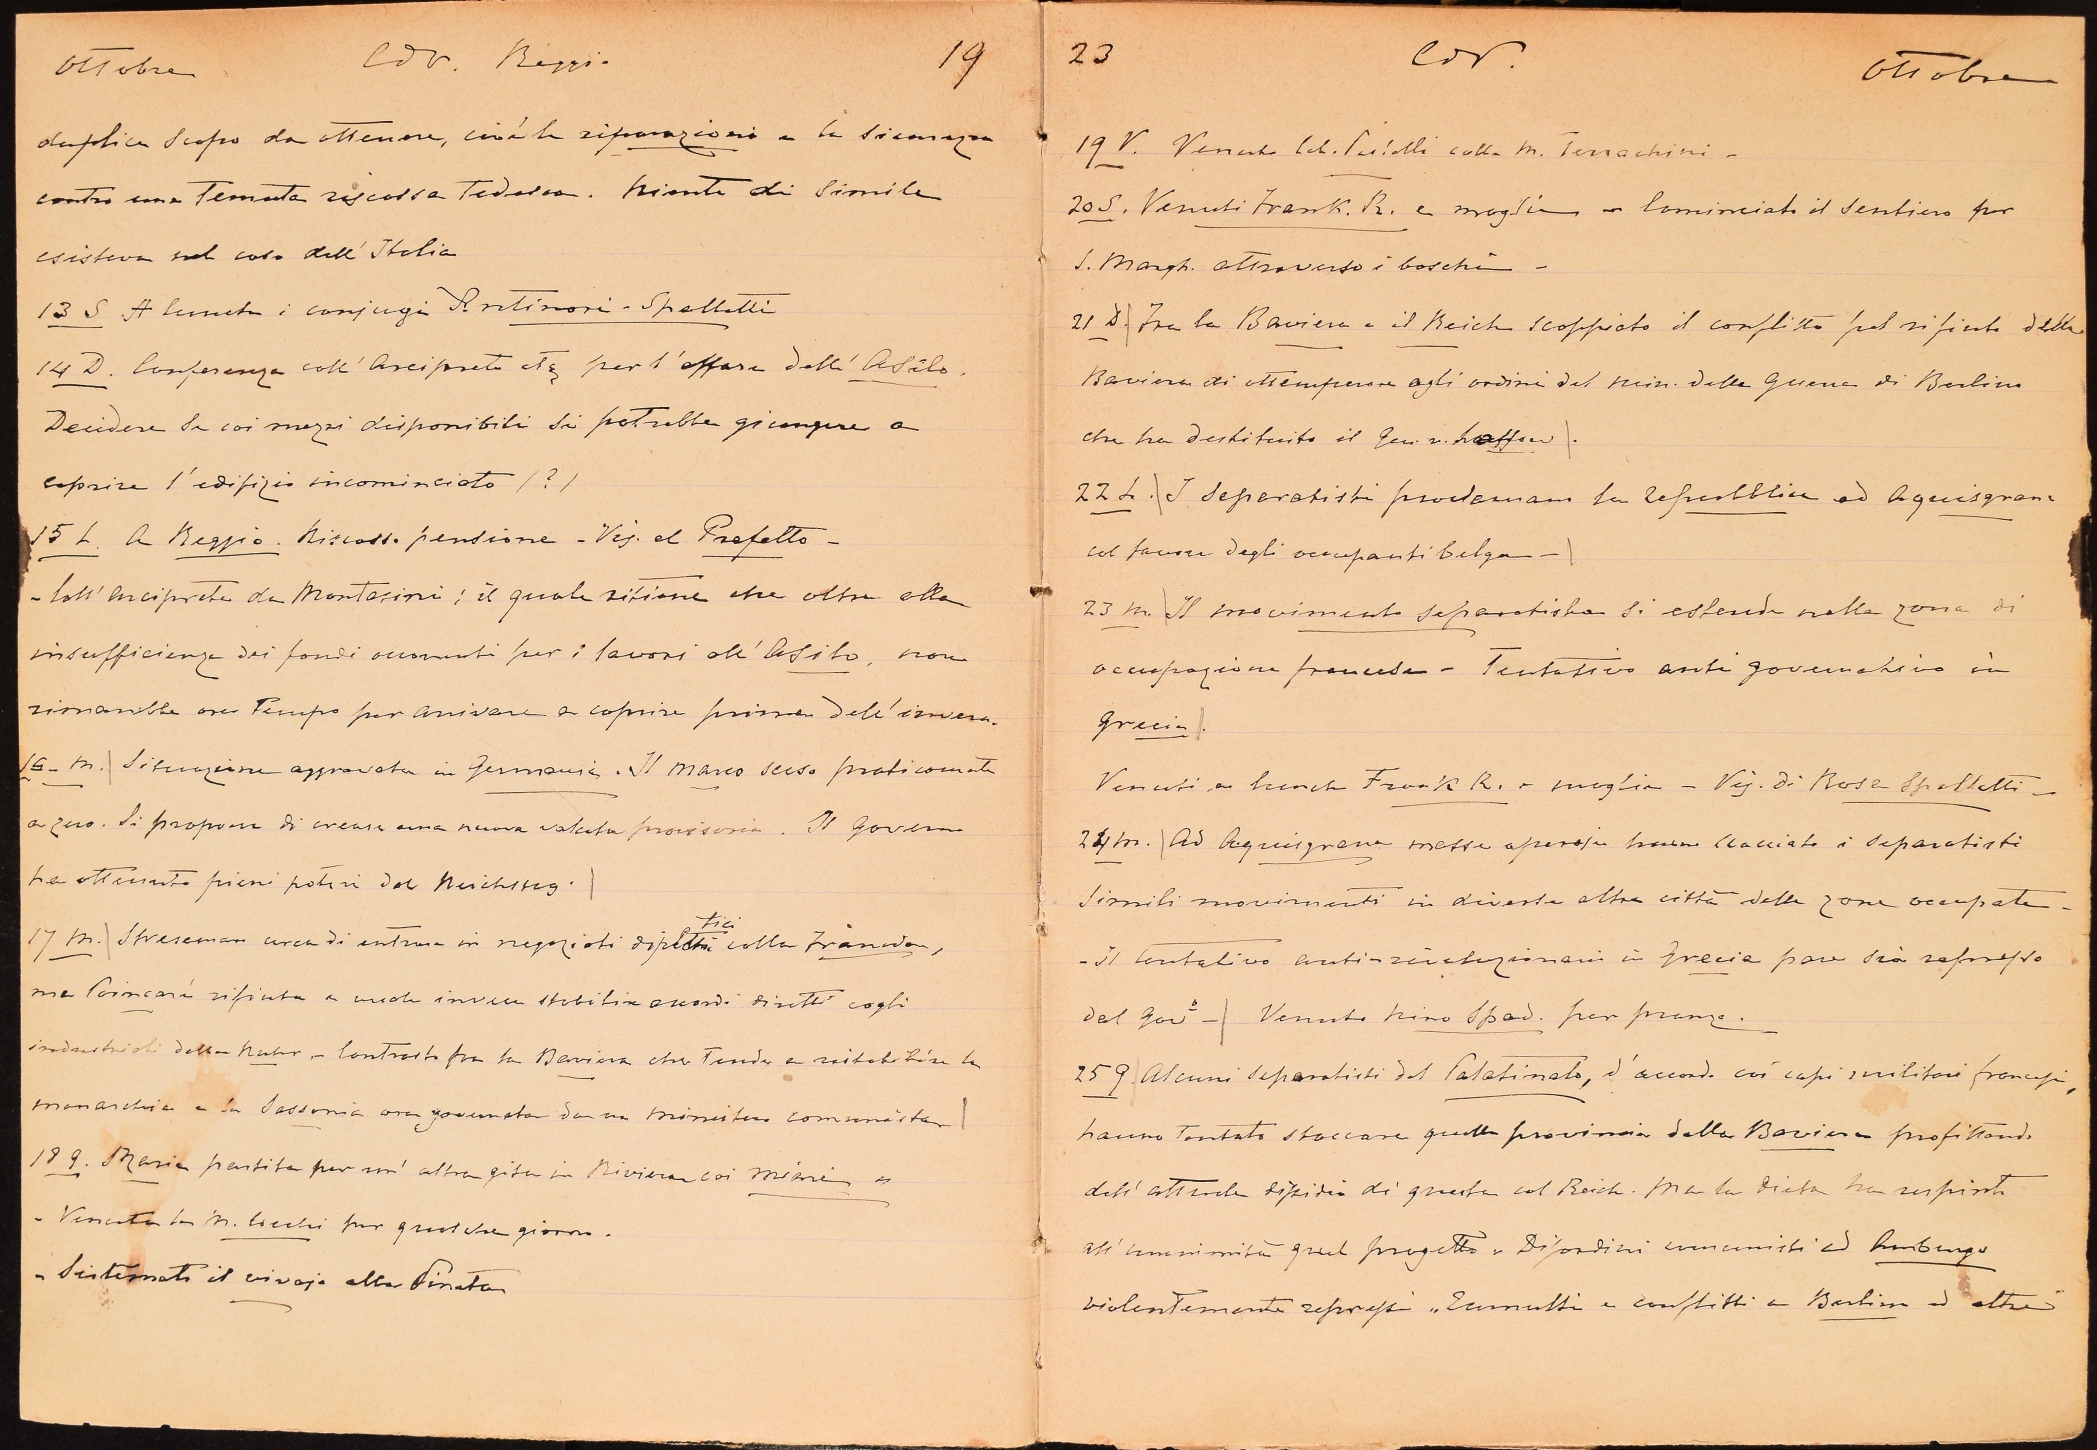 Ottobre CdV. Reggio 19
duplice scopo da ottenere, cioè le riparazioni e la sicurezza
contro una temuta riscossa tedesca. Niente di simile
esisteva nel caso dell'Italia
13 S A lunch i conjugi Antinori-Spalletti
14 D. Conferenza coll'Arciprete etc per l'affare dell'Asilo.
Decidere se coi mezzi disponibili si potrebbe giungere a
coprire l'edifizio incominciato (?)
15 L. A Reggio. Riscosso pensione - Vis. al Prefetto -
- Coll'arciprete da Montasini; il quale ritiene che oltre alla
insufficienza dei fondi occorrenti per i lavori all'Asilo, non
rimarrebbe ora tempo per arrivare a coprire prima dell'inver.
16 - M. | Situazione aggravata in Germania. Il Marco sceso praticamente
a zero. Si propone di creare una nuova valuta provisoria. Il Governo
ha ottenuto pieni poteri dal Reichstag. |
17 M. | Streseman cerca di entrare in negoziati diplotici colla Francia,
ma Poincaré rifiuta e vuole invece stabilire accordi diretti cogli
industriali della Ruhr - Contrasto fra la Baviera che tende a ristabilire la
monarchia e la Sassonia ora governata da un ministero comunista |
18 G. Maria partita per un'altra gita in Riviera coi Miari -
- Venuta la M. Cocchi per qualche giorno.
- Sistemato il vivajo alla Pineta
23 CdV. Ottobre
19 V. Venuto Col. colla M. Terrachini -
20 S. Venuti Frank. R. e moglie - Cominciato il sentiero per
S. Margh. attraverso i boschi -
21 D. | Fra la Baviera e il Reich scoppiato il conflitto pel rifiuto della
Baviera di ottemperare agli ordini del min. della Guerra di Berlino
che ha destituito il Gen. v. Lossow |.
22 L. | I separatisti proclamano la repubblica ad Aquisgrana
col favore degli occupanti belga - |
23 M. | Il movimento separatista si estende nella zona di
occupazione francese - Tentativo anti governativo in
Grecia |.
Venuti a lunch Frank R. e moglie - Vis. di Rosa Spalletti -
24 M. | Ad Aquisgrana masse operaje hanno scacciato i separatisti
Simili movimenti in diverse altre città delle zone occupate -
- Il tentativo anti-rivoluzionario in Grecia pare sia represso
dal Govo - | Venuto Nino Spad. per pranzo.
25 G | Alcuni separatisti del Palatinato, d'accordo coi capi militari francesi,
hanno tentato staccare quella provincia dalla Baviera profittando
dell'attuale dissidio di questa col Reich. Ma la Dieta ha respinto
all'unanimità quel progetto - Disordini comunisti ad Amburgo
violentemente repressi - Tumulti e conflitti a Berlino ed altre